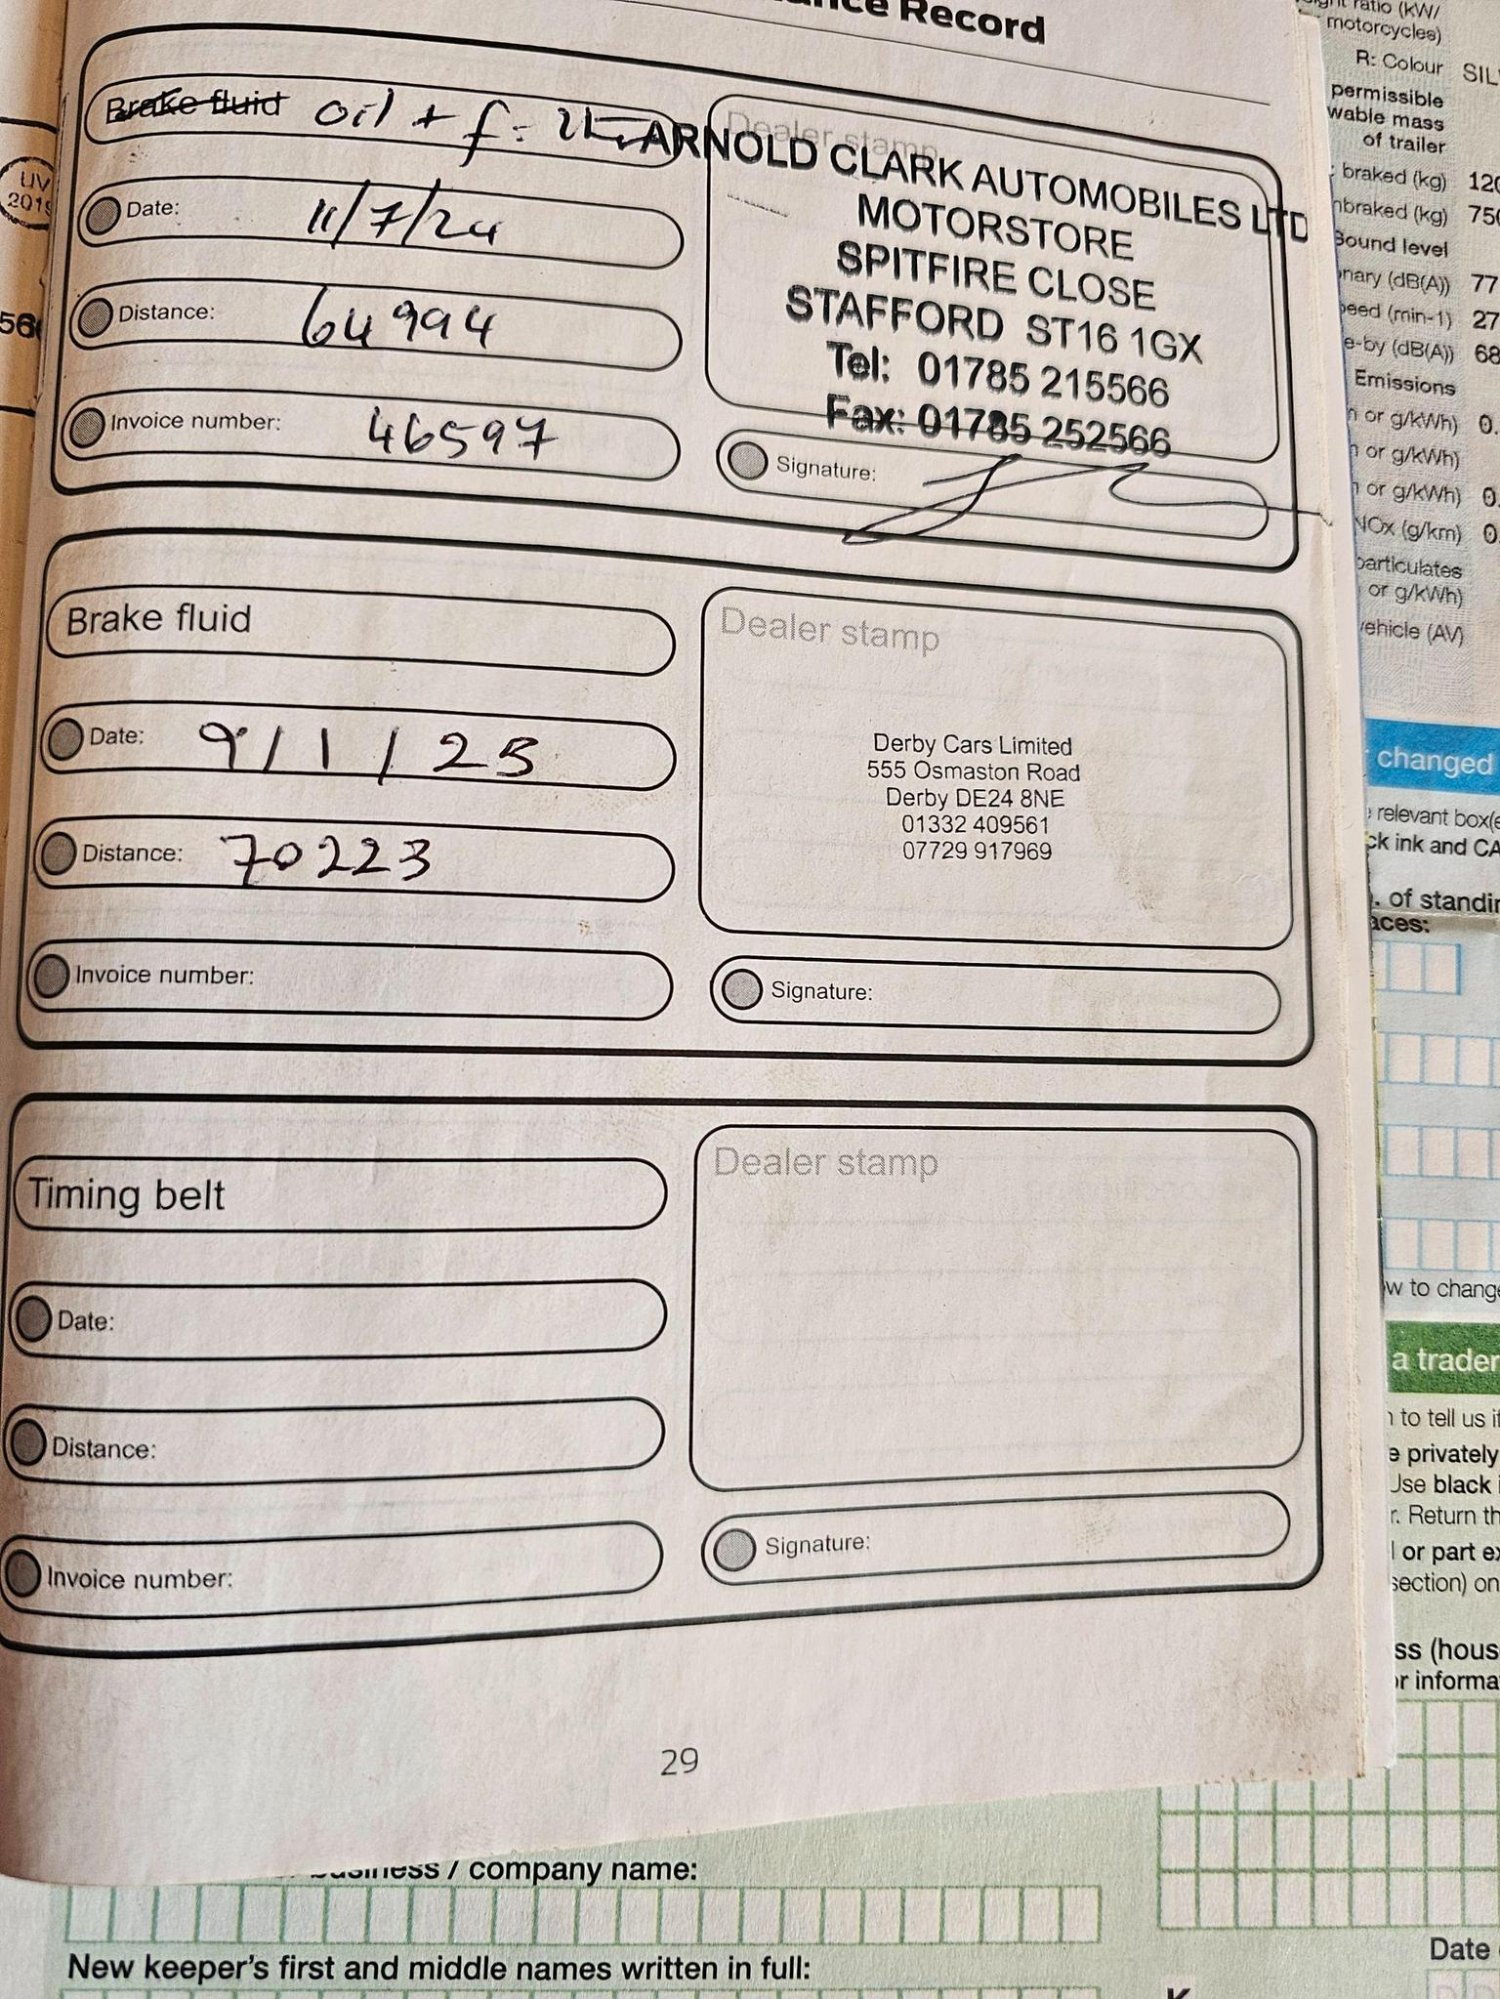 Record
Brake fluid oil + f
Date: 11/7/24
Distance: 64994
Invoice number: 46597
Dealer stamp
ARNOLD CLARK AUTOMOBILES LTD
MOTORSTORE
SPITFIRE CLOSE
STAFFORD ST16 1GX
Tel: 01785 215566
Fax: 01785 252566
Signature:
Brake fluid
Date: 9/1/25
Distance: 70223
Invoice number:
Dealer stamp
Derby Cars Limited
555 Osmaston Road
Derby DE24 8NE
01332 409561
07729 917969
Signature:
Timing belt
Date:
Distance:
Invoice number:
Dealer stamp
Signature:
29
ratio (kW/
motorcycles)
R: Colour
permissible
mass
of trailer
braked (kg)
Sound level
(dB(A)) 77
(min-1) 27
(dB(A)) 68
Emissions
or g/kWh) 0.
or g/kWh)
or g/kWh) 0
NOx (g/km) 0
particulates
or g/kWh)
vehicle (AV)
changed
relevant
ink and
of
to
a trader
to tell us
privately
Use black
Return
or part
section) on
/ company name:
New keeper's first and middle names written in full:
Date